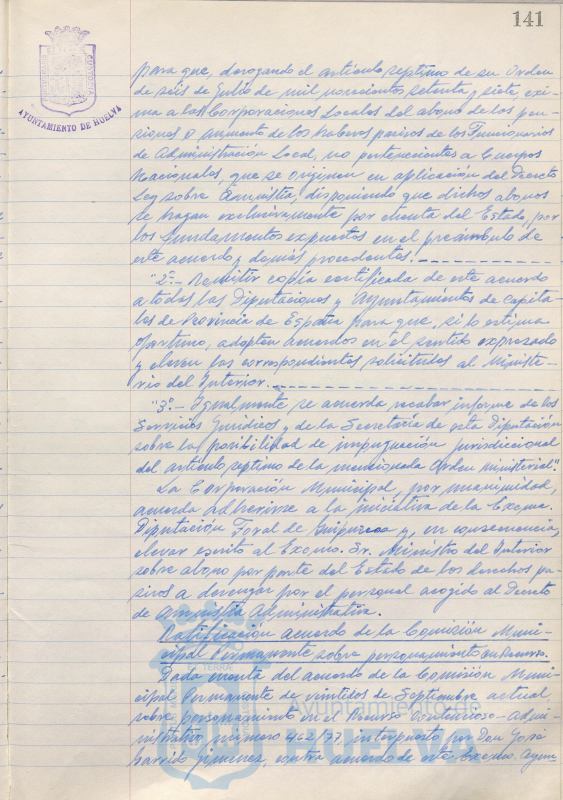 141
AYUNTAMIENTO DE HUELVA
para que, derogando el artículo septimo de su Orden
de seis de Julio de mil novecientos setenta y siete, exi-
ma a las Corporaciones Locales del abono de los pen-
siones o aumento de los haberes pasivos de los Funcionarios
de Administración Local, no pertenecientes a Cuerpos
Nacionales, que se originen en aplicación del Decreto
Ley sobre Amnistía, disponiendo que dichos abonos
se hagan exclusivamente por cuenta del Estado, por
los fundamentos expuestos en el preámbulo de
este acuerdo y demás procedentes.
"2º.- Remitir copia certificada de este acuerdo
a todas las Diputaciones y Ayuntamientos de Capita-
les de Provincia de España para que, si lo estima
oportuno, adopten acuerdos en el sentido expresado
y eleven las correspondientes solicitudes al Ministe-
rio del Interior.
"3º.- Igualmente se acuerda recabar informe de los
Servicios Jurídicos y de la Secretaría de esta Diputación
sobre la posibilidad de impugnación jurisdiccional
del artículo septimo de la mencionada Orden Ministerial".
La Corporación Municipal, por unanimidad,
acuerda adherirse a la iniciativa de la Excma.
Diputación Foral de Guipuzcoa y, en consecuencia,
elevar escrito al Excmo. Sr. Ministro del Interior
sobre abono por parte del Estado de los derechos pa-
sivos a devengar por el personal acogido al Decreto
de Amnistía Administrativa.
Ratificación acuerdo de la Comisión Muni-
cipal Permanente sobre personamiento en Recurso.
Dada cuenta del acuerdo de la Comisión Muni-
cipal Permanente de veintidos de Septiembre actual
sobre personamiento en el Recurso Contencioso-Admi-
nistrativo número 462/77 interpuesto por Don José
Garrido Jimenez, contra acuerdo de este Excmo. Ayun-
Ayuntamiento de
HUELVA